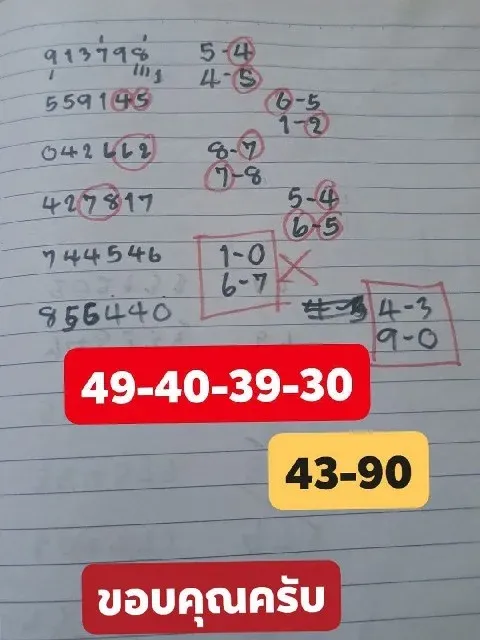 913798 5-4
4-5
559145 6-5
1-2
042662 8-7
7-8
427817 5-4
6-5
744546 1-0
6-7
855440 4-3
9-0
49-40-39-30
43-90
ขอบคุณครับ